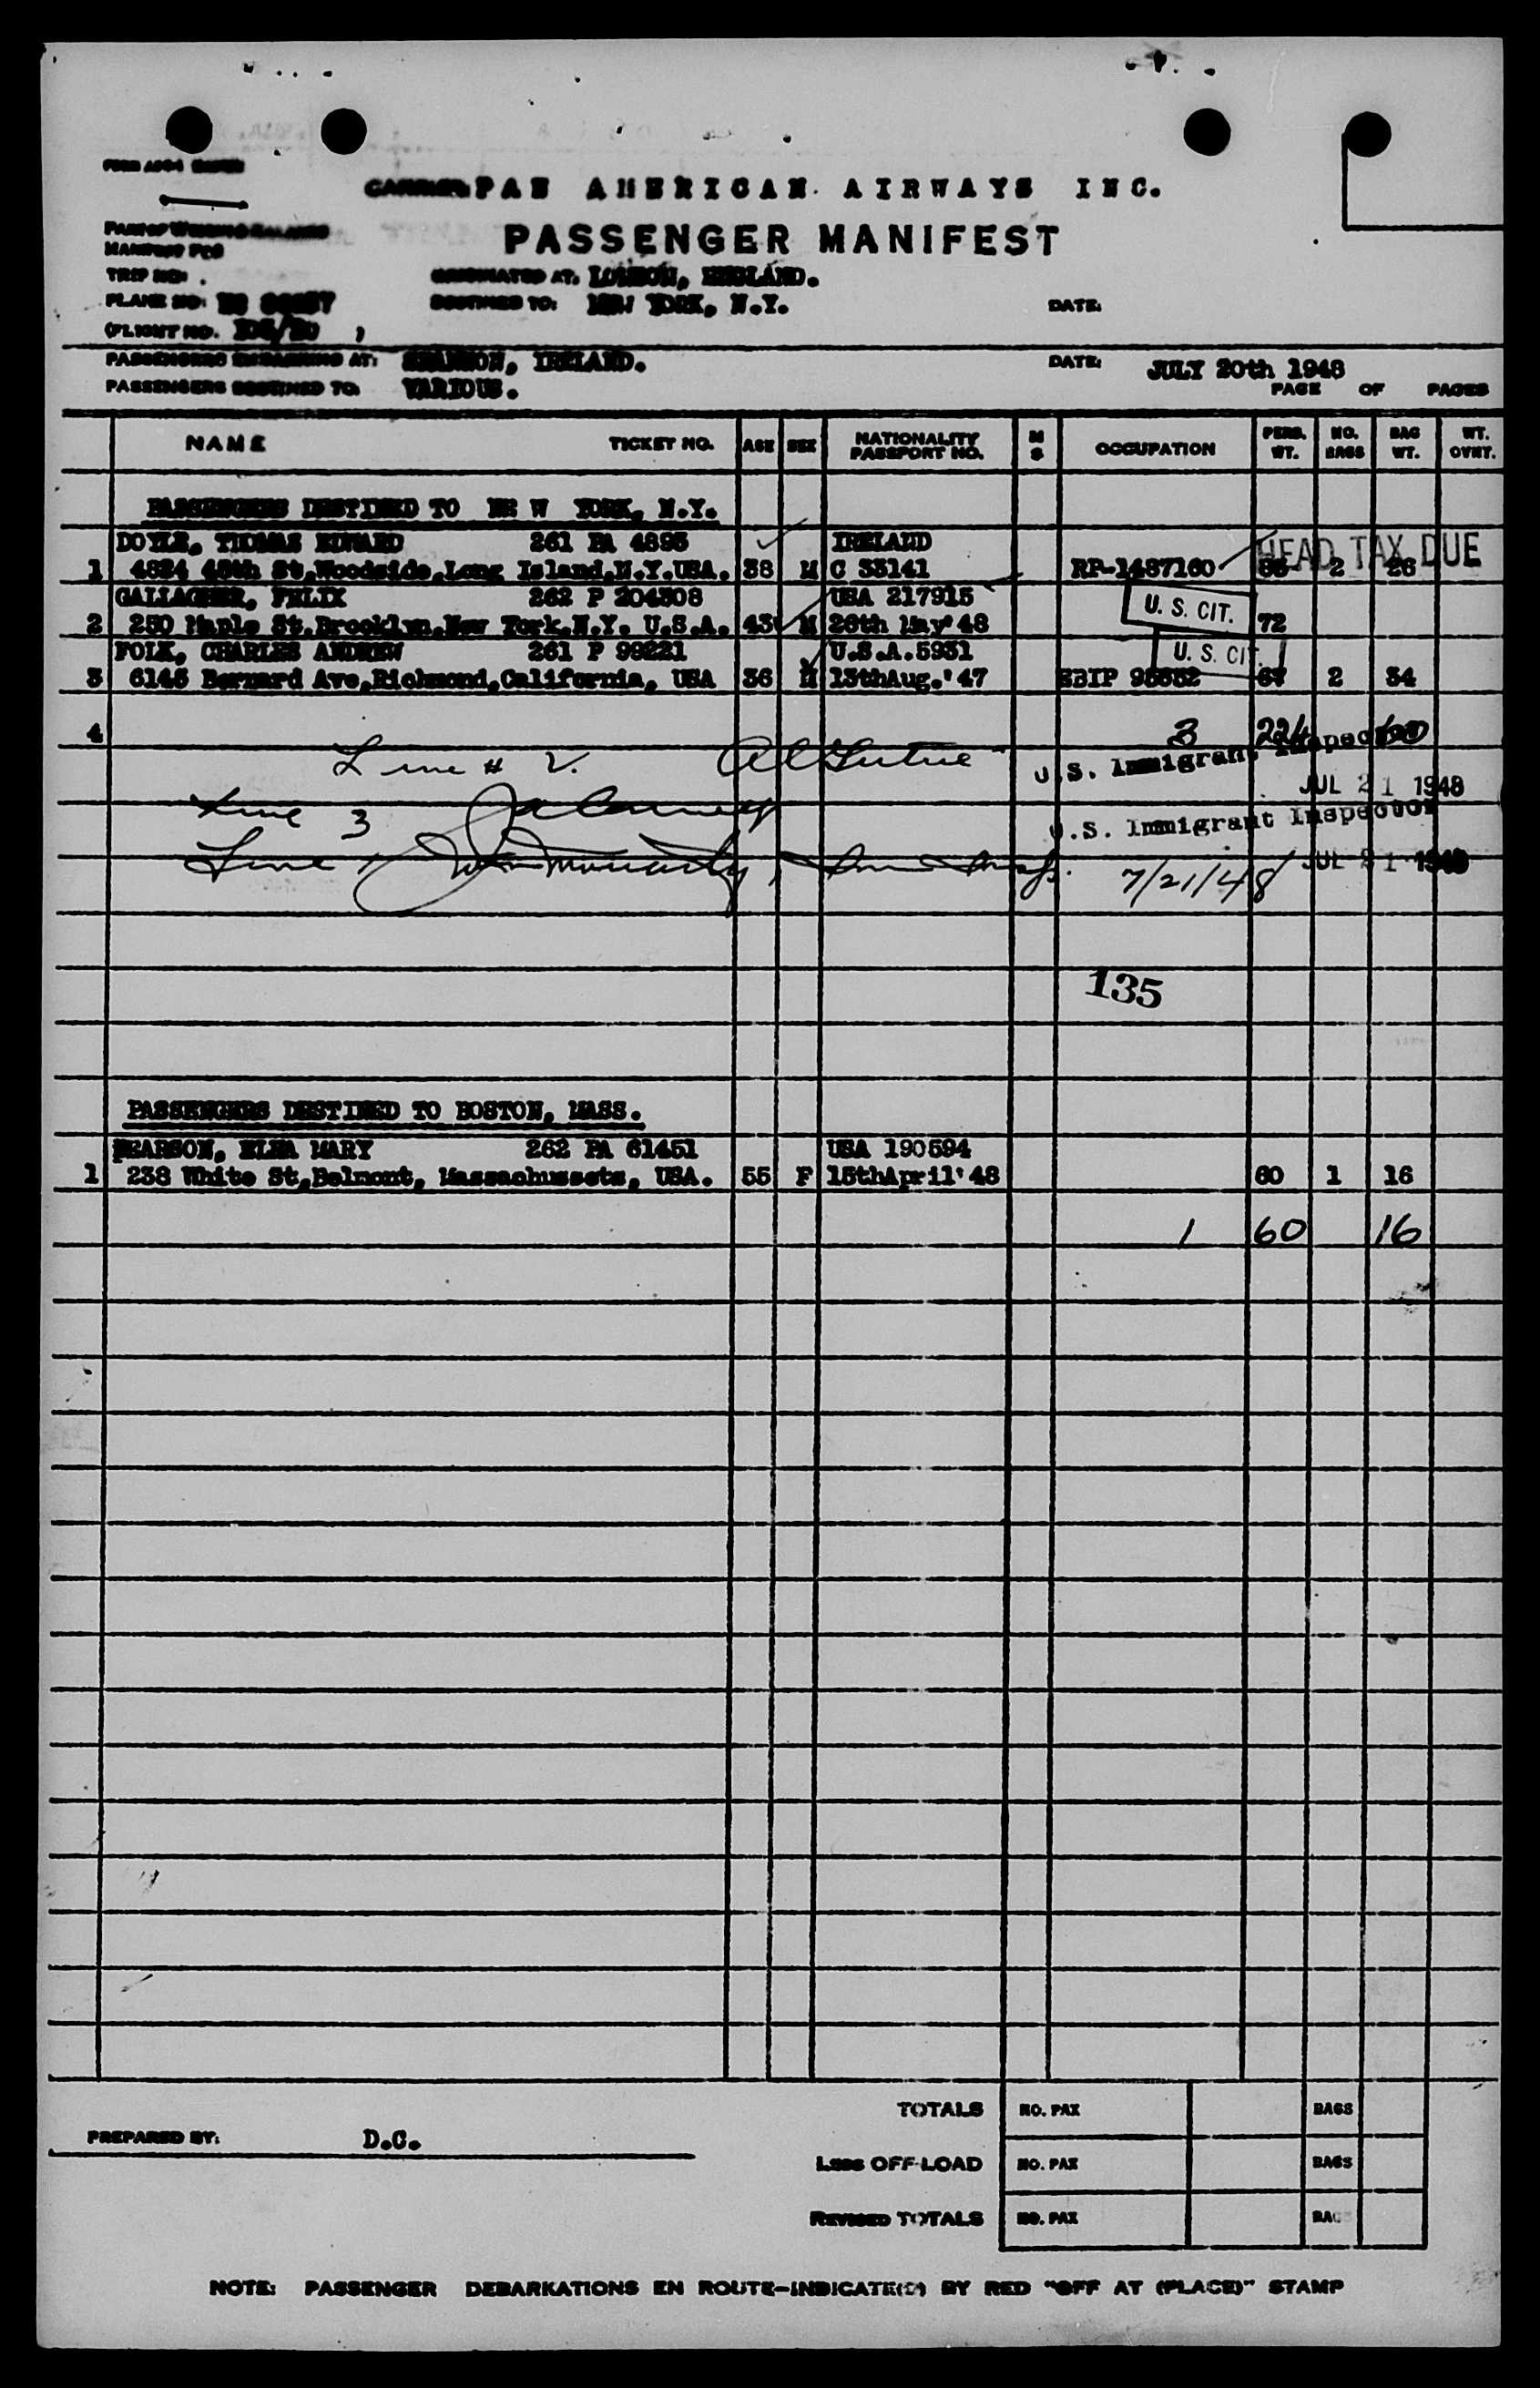 PAN AMERICAN AIRWAYS INC.
PASSENGER MANIFEST
MANIFEST FOR
TRIP NO:
ORIGINATED AT: LONDON, ENGLAND.
PLANE NO: NC
DESTINED TO: NEW YORK, N.Y.
DATE:
(FLIGHT NO. )
PASSENGERS EMBARKING AT: SHANNON, IRELAND.
DATE: JULY 20th 1948
PASSENGERS DESTINED TO: VARIOUS.
PAGE OF PAGES
NAME TICKET NO. AGE SEX NATIONALITY PASSPORT NO. M S OCCUPATION PERS. WT. NO. BAGS BAG WT. WT. OVHT.
PASSENGERS DESTINED TO NE W YORK, N.Y.
DOYLE, THOMAS EDWARD 261 PA 4895 IRELAND HEAD TAX DUE
1 4824 48th St.Woodside,Long Island,N.Y.USA. 38 M C 33141 RP-1487160 85 2 26
GALLAGHER, FELIX 262 P 204308 USA 217915 U. S. CIT.
2 250 Maple St.Brooklyn.New York.N.Y. U.S.A. 43 M 26th May'48 72
FOLK, CHARLES ANDREW 261 P 99221 U.S.A.5931 U. S. CIT.
3 6146 Bernard Ave,Richmond,California, USA 36 M 13thAug.'47 67 2 34
4 3 224
Line # 2.
U.S. Immigrant Inspector
JUL 21 1948
Line 3
U.S. Immigrant Inspector
JUL 21 1948
Line 1 7/21/48
135
PASSENGERS DESTINED TO BOSTON, MASS.
PEARSON, ELNA MARY 262 PA 61451 USA 190594
1 238 White St,Belmont, Massachussets, USA. 55 F 15thApril'48 60 1 16
1 60 16
TOTALS NO. PAX BAGS
PREPARED BY: D.C.
Less OFF-LOAD NO. PAX BAGS
REVISED TOTALS NO. PAX BAGS
NOTE: PASSENGER DEBARKATIONS EN ROUTE-INDICATE(D) BY RED "OFF AT (PLACE)" STAMP